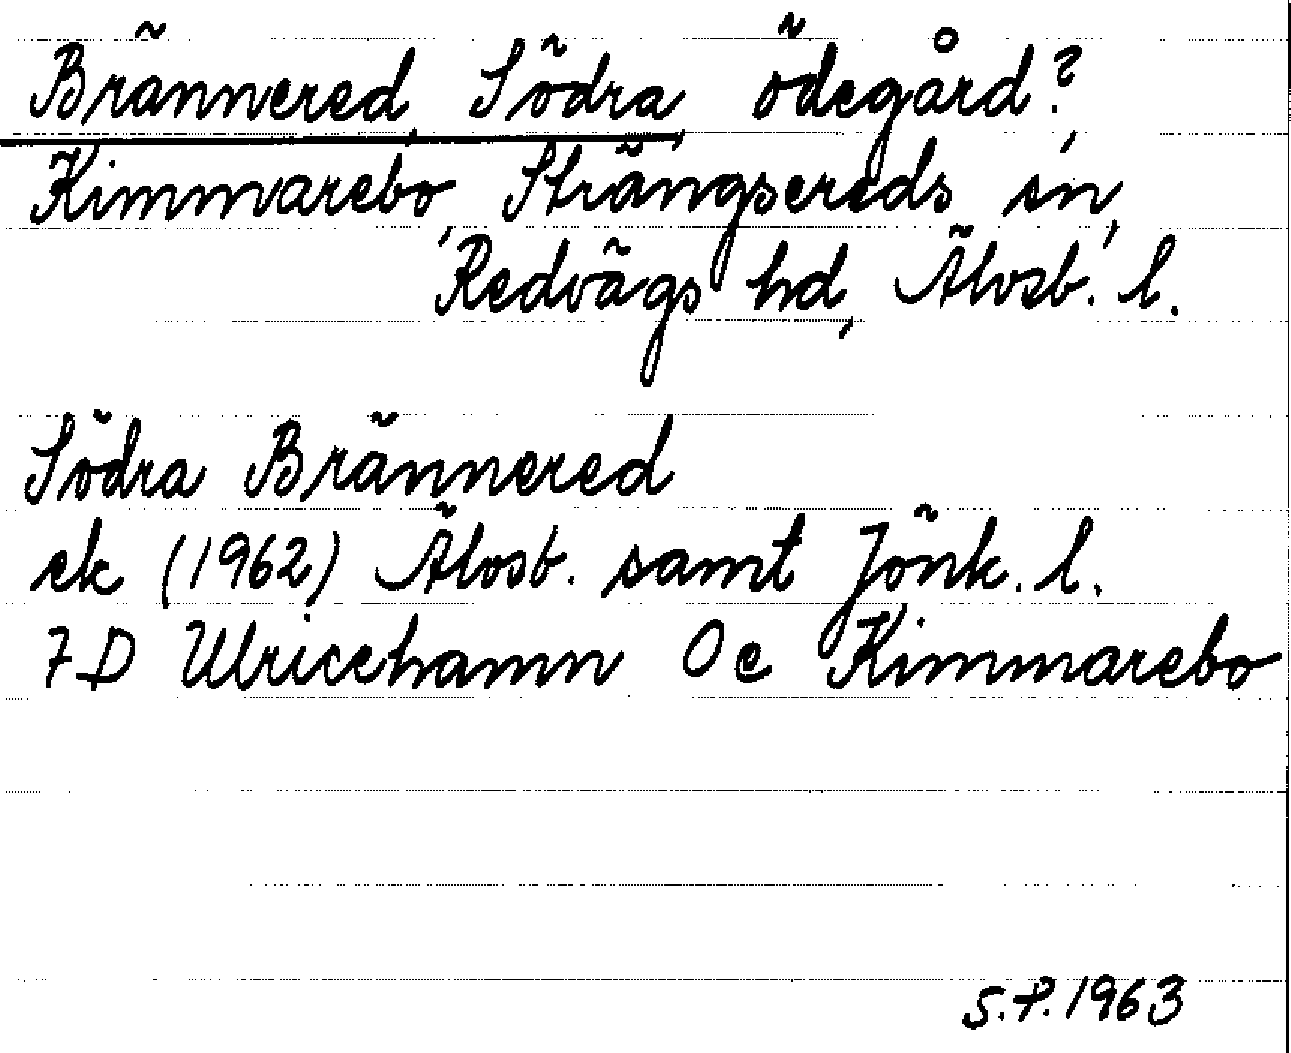 Brännered, Södra, ödegård?,
Kimmarebo, Strängsereds sn,
Redvägs hd, Älvsb. l.
Södra Brännered
ek (1962) Älvsb. samt Jönk. l.
7D Ulricehamn 0e Kimmarebo
S.P. 1963